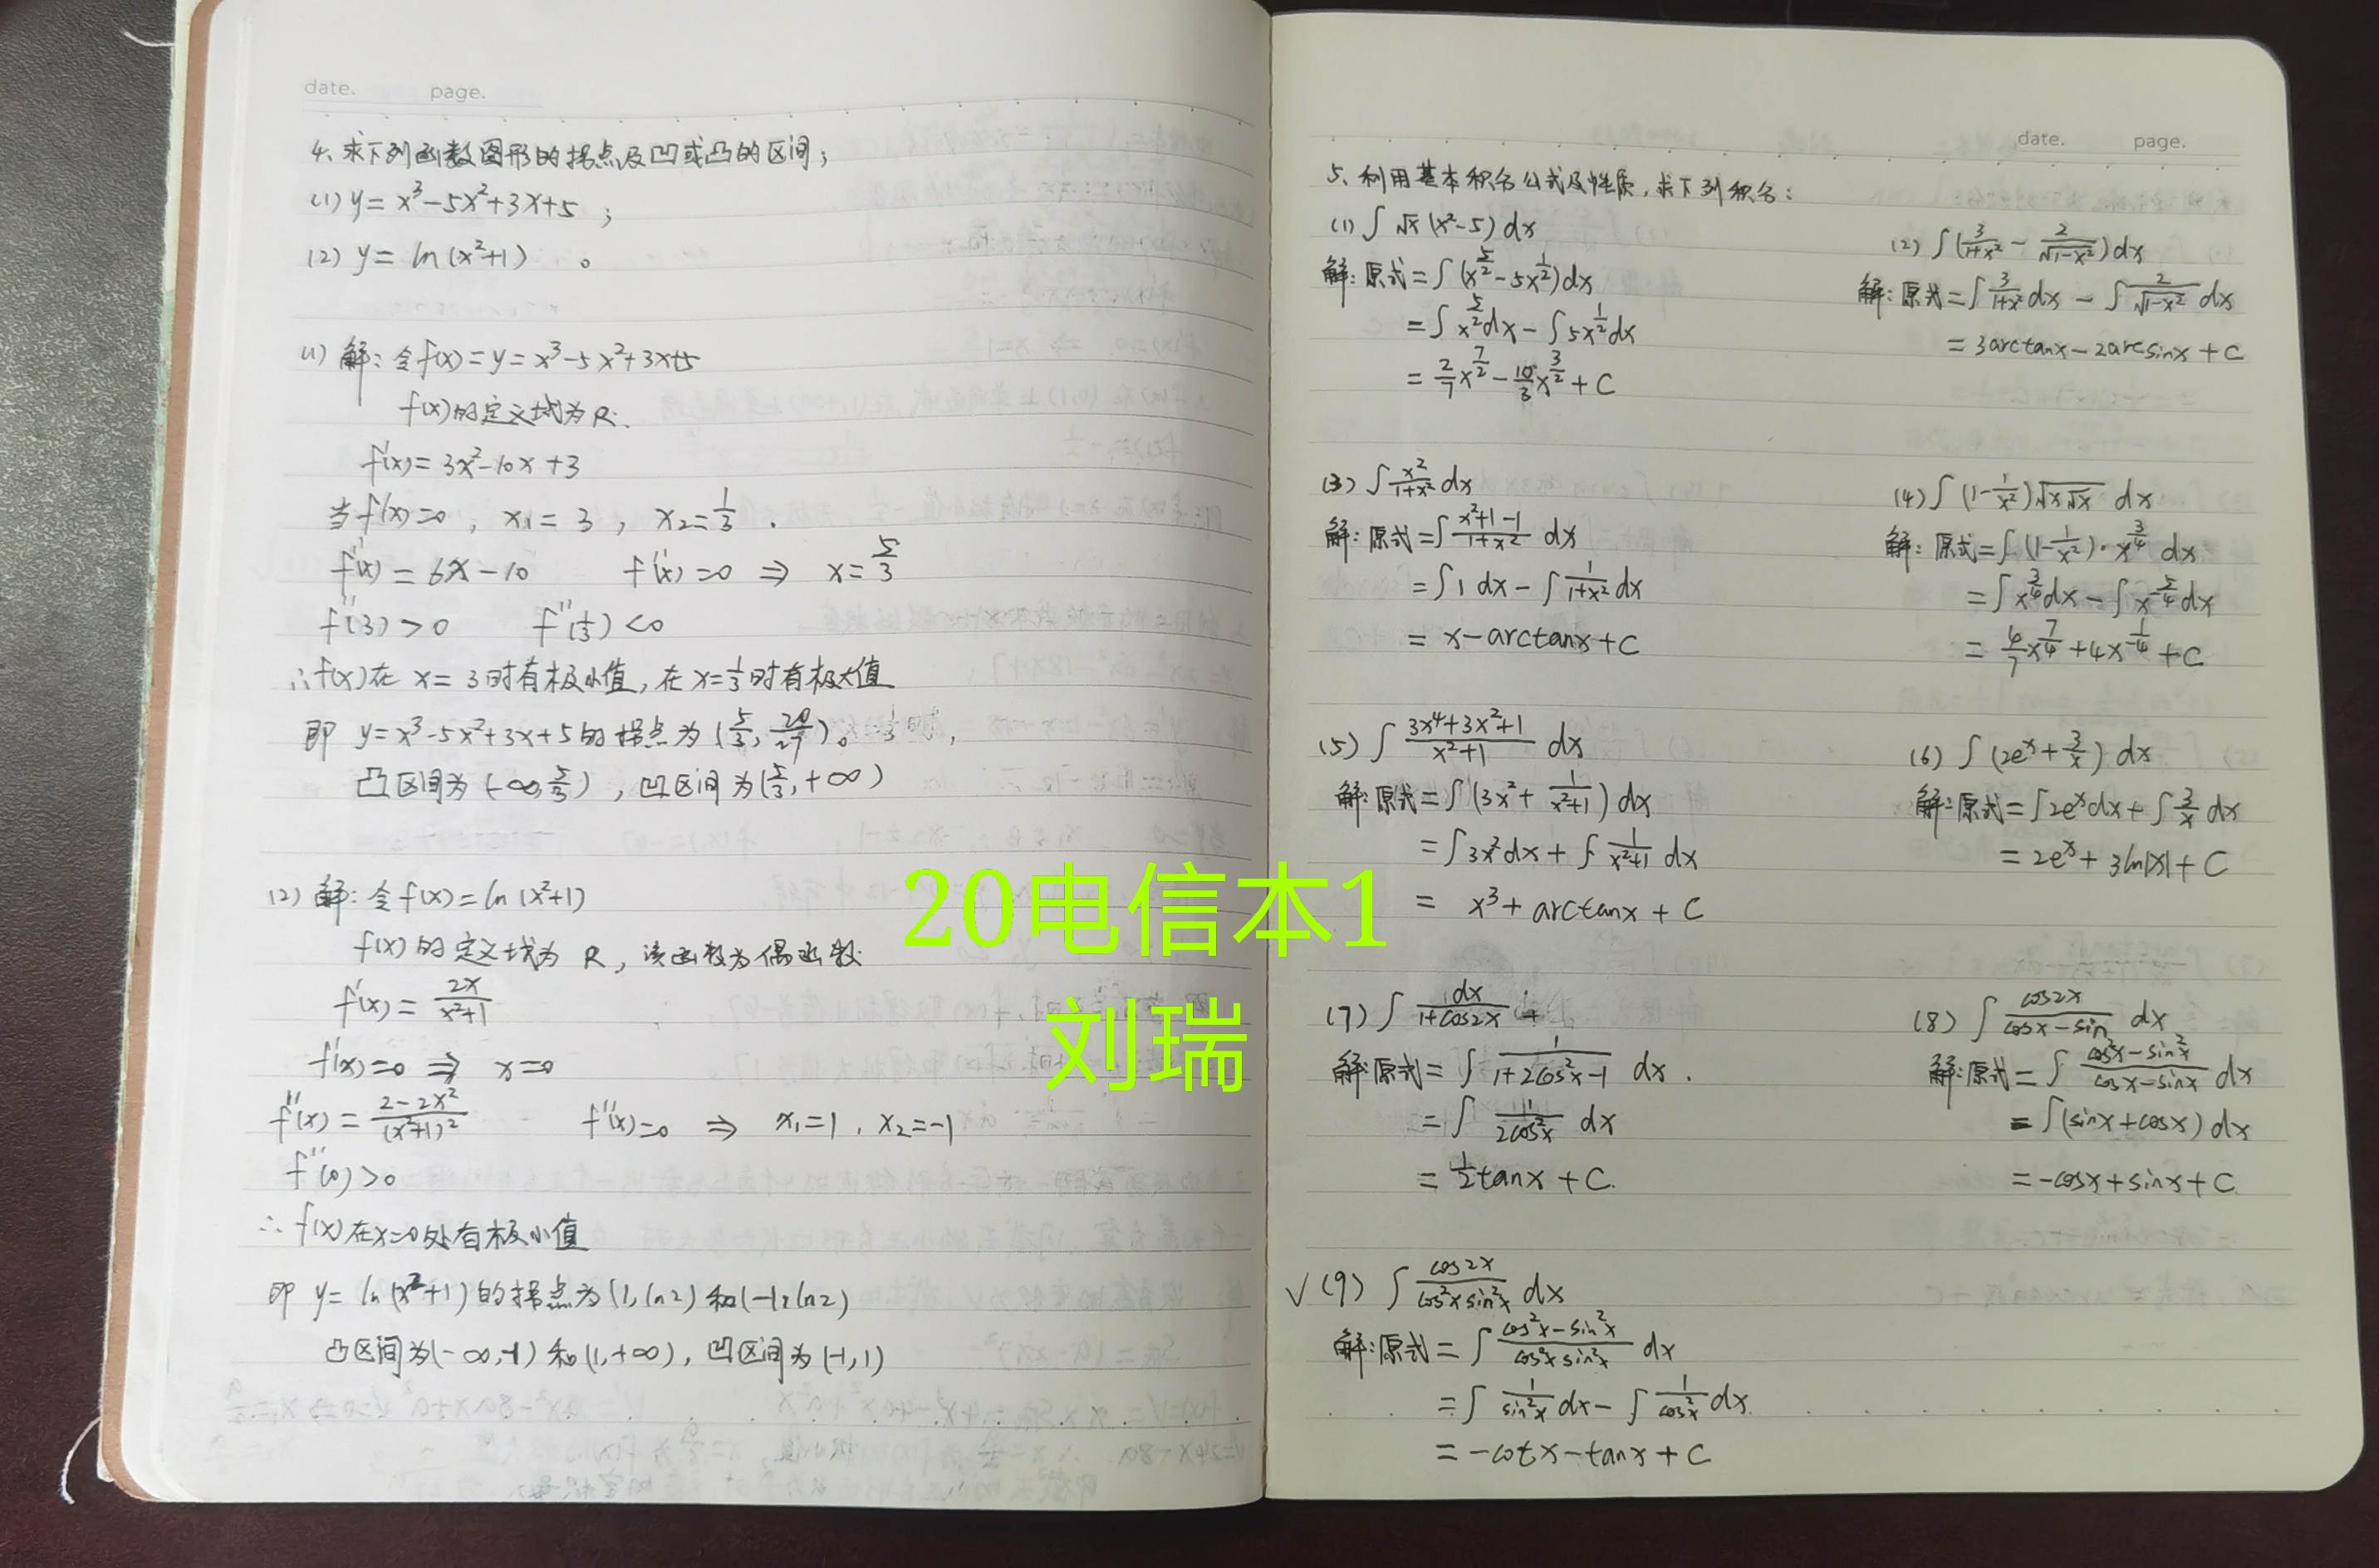 date. page.
4、求下列函数图形的拐点及凹或凸的区间；
(1) y = x³-5x²+3x+5 ；
(2) y = ln(x²+1) 。
(1) 解：令f(x) = y = x³-5x²+3x+5
f(x)的定义域为R.
f'(x) = 3x²-10x+3
当f'(x)=0 , x₁ = 3 , x₂ = 1/3 .
f''(x) = 6x-10 f''(x)=0 ⇒ x = 5/3
f''(3) > 0 f''(1/3) < 0
∴f(x)在 x = 3时有极小值，在x=1/3时有极大值
即 y = x³-5x²+3x+5的拐点为(5/3, 20/27)。
凸区间为(-∞,5/3) , 凹区间为(5/3,+∞)
(2) 解：令f(x) = ln(x²+1)
f(x)的定义域为 R , 该函数为偶函数
f'(x) = 2x/(x²+1)
f'(x)=0 ⇒ x=0
f''(x) = (2-2x²)/(x²+1)² f''(x)=0 ⇒ x₁=1 , x₂=-1
f''(0) > 0
∴ f(x)在x=0处有极小值
即 y = ln(x²+1)的拐点为(1,ln2)和(-1,ln2)
凸区间为(-∞,-1)和(1,+∞) , 凹区间为(-1,1)
date. page.
5、利用基本积分公式及性质，求下列积分：
(1) ∫√x(x²-5)dx
解：原式=∫(x^(5/2)-5x^(1/2))dx
=∫x^(5/2)dx-∫5x^(1/2)dx
=2/7x^(7/2)-10/3x^(3/2)+C
(2) ∫(3/(1+x²)-2/√(1-x²))dx
解：原式=∫3/(1+x²)dx-∫2/√(1-x²)dx
=3arctanx-2arcsinx+C
(3) ∫x²/(1+x²)dx
解：原式=∫(x²+1-1)/(1+x²)dx
=∫1dx-∫1/(1+x²)dx
=x-arctanx+C
(4) ∫(1-1/x²)√(x√x)dx
解：原式=∫(1-1/x²)·x^(3/4)dx
=∫x^(3/4)dx-∫x^(-5/4)dx
=4/7x^(7/4)+4x^(-1/4)+C
(5) ∫(3x⁴+3x²+1)/(x²+1)dx
解：原式=∫(3x²+1/(x²+1))dx
=∫3x²dx+∫1/(x²+1)dx
=x³+arctanx+C
(6) ∫(2eˣ+3/x)dx
解：原式=∫2eˣdx+∫3/xdx
=2eˣ+3ln|x|+C
(7) ∫dx/(1+cos2x)
解：原式=∫1/(1+2cos²x-1)dx.
=∫1/(2cos²x)dx
=1/2tanx+C.
(8) ∫cos2x/(cosx-sin)dx
解：原式=∫(cos²x-sin²x)/(cosx-sinx)dx
=∫(sinx+cosx)dx
=-cosx+sinx+C.
√(9) ∫cos2x/(cos²xsin²x)dx
解：原式=∫(cos²x-sin²x)/(cos²xsin²x)dx
=∫1/sin²xdx-∫1/cos²xdx.
=-cotx-tanx+C
20电信本1
刘瑞